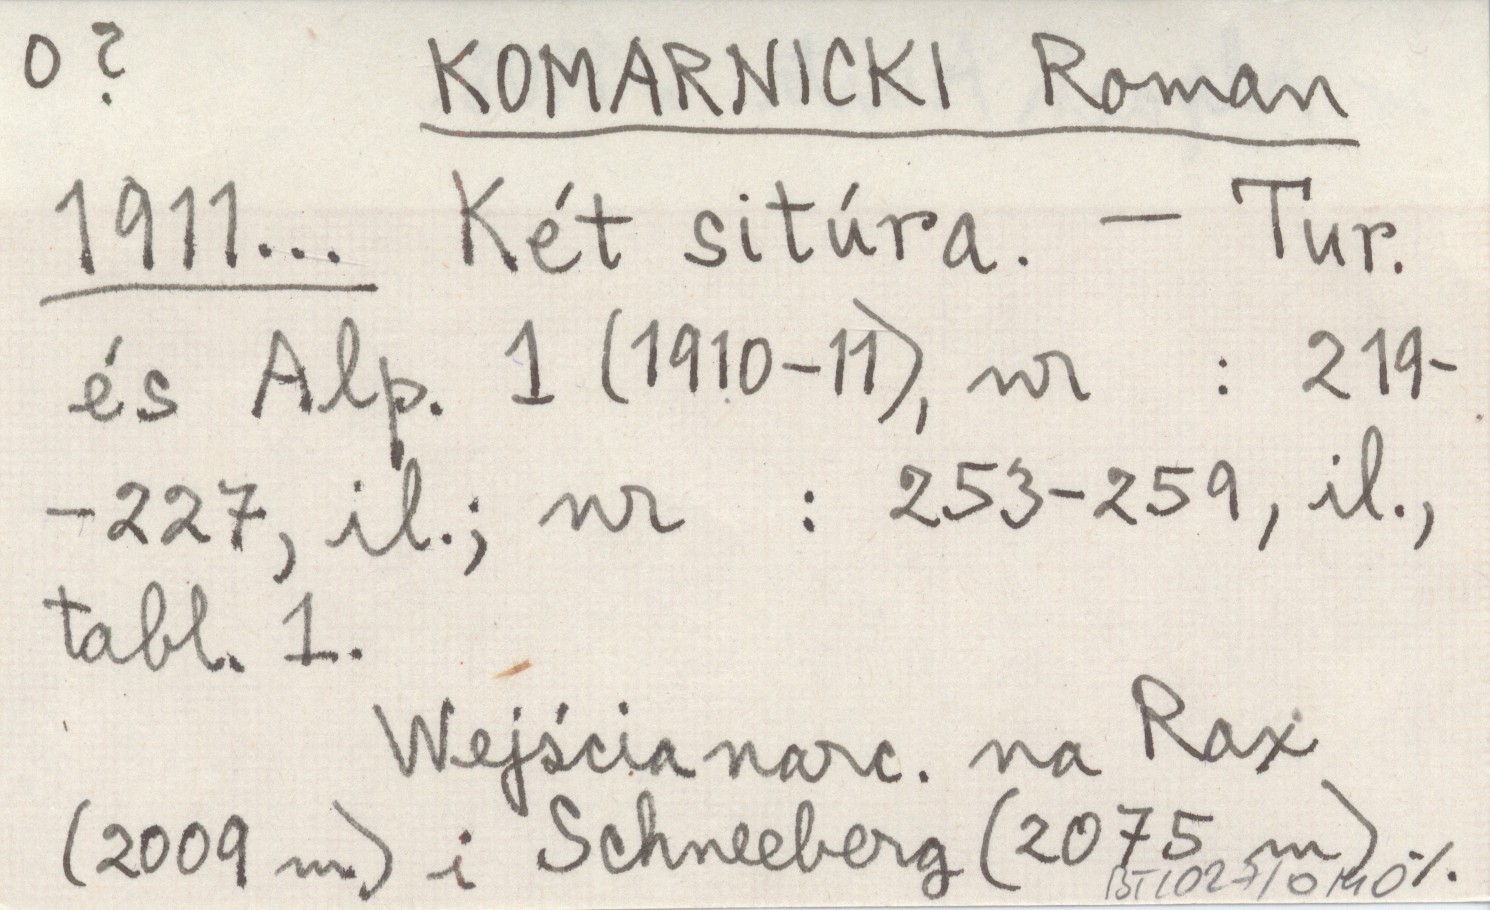 o ? KOMARNICKI Roman
1911... Két sitúra. — Tur.
és Alp. 1 (1910-11), nr : 219-
-227, il.; nr : 253-259, il.,
tabl. 1.
Wejścia narc. na Rax
(2009 m.) i Schneeberg (2075 m) ·/.